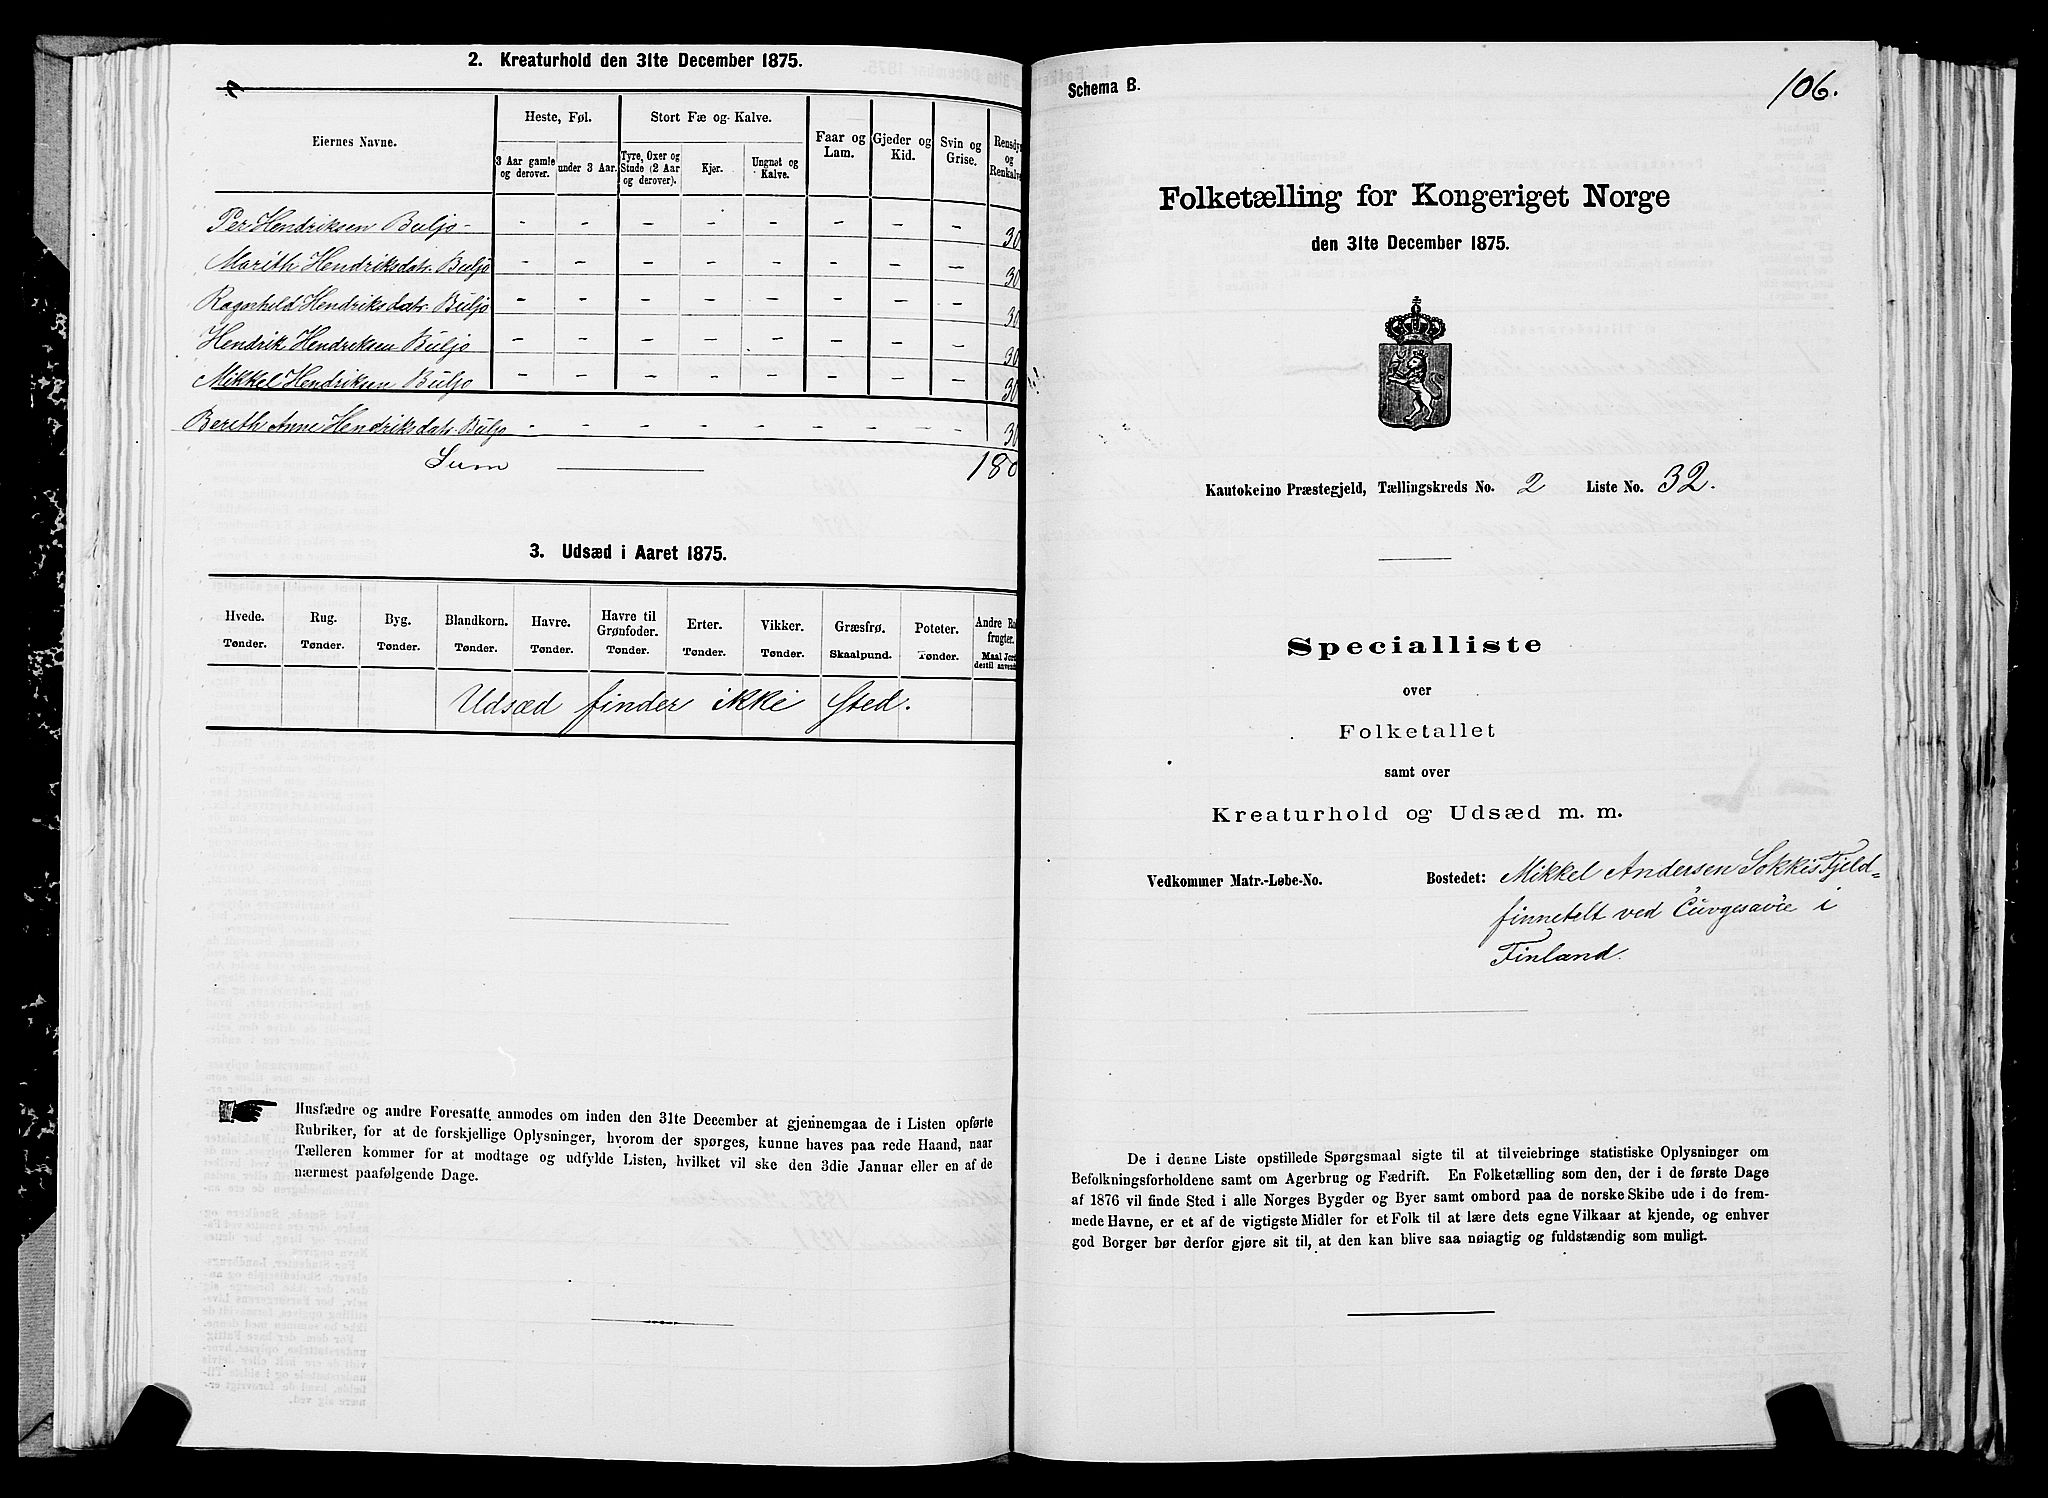 2. Kreaturhold den 31te December 1875.
Eiernes Navne.
Heste, Føl.
Stort Fæ og Kalve.
Faar og Lam.
Gjeder og Kid.
Svin og Grise.
Rensdyr og Renkalve
3 Aar gamle og derover.
under 3 Aar.
Tyre, Oxer og Stude (2 Aar og derover).
Kjør.
Ungnøt og Kalve.
Per Hendriksen Buljo - - - - - - - - - 30
Marith Hendriksdatr. Buljo - - - - - - - - 30
Ragnhild Hendriksdatr. Buljo - - - - - - - - 30
Hendrik Hendriksen Buljo - - - - - - - - 30
Mikkel Hendriksen Buljo - - - - - - - - 30
Berith Anne Hendriksdatr. Buljo - - - - - - - - 30
Sum 180
3. Udsæd i Aaret 1875.
Hvede. Tønder.
Rug. Tønder.
Byg. Tønder.
Blandkorn. Tønder.
Havre. Tønder.
Havre til Grønfoder. Tønder.
Erter. Tønder.
Vikker. Tønder.
Græsfrø. Skaalpund.
Poteter. Tønder.
Andre frugter. Maal destil
Udsæd finder ikke Sted.
Husfædre og andre Foresatte anmodes om inden den 31te December at gjennemgaa de i Listen opførte
Rubriker, for at de forskjellige Oplysninger, hvorom der spørges, kunne haves paa rede Haand, naar
Tælleren kommer for at modtage og udfylde Listen, hvilket vil ske den 3die Januar eller en af de
nærmest paafølgende Dage.
Schema B.
106.
Folketælling for Kongeriget Norge
den 31te December 1875.
Kautokeino Præstegjeld, Tællingskreds No. 2 Liste No. 32.
Specialliste
over
Folketallet
samt over
Kreaturhold og Udsæd m. m.
Vedkommer Matr.-Løbe-No.
Bostedet: Mikkel Andersen Sokkis Fjeld=
finnetelt ved Cuvgesavie i
Finland.
De i denne Liste opstillede Spørgsmaal sigte til at tilveiebringe statistiske Oplysninger om
Befolkningsforholdene samt om Agerbrug og Fædrift. En Folketælling som den, der i de første Dage
af 1876 vil finde Sted i alle Norges Bygder og Byer samt ombord paa de norske Skibe ude i de frem-
mede Havne, er et af de vigtigste Midler for et Folk til at lære dets egne Vilkaar at kjende, og enhver
god Borger bør derfor gjøre sit til, at den kan blive saa nøiagtig og fuldstændig som muligt.